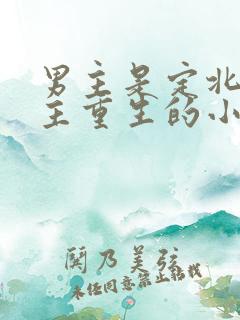 男主是定北
主重生的小
阅乃美弦
未经同意禁止转载